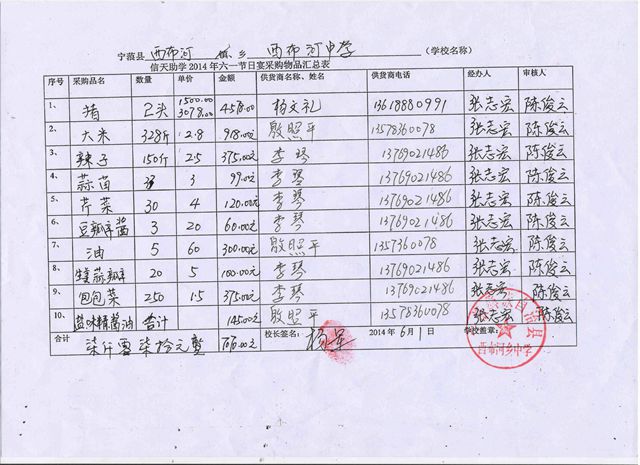 宁蒗县 西布河 镇、乡 西布河中学 (学校名称)
信天助学 2014 年六一节日宴采购物品汇总表
序号 采购品名 数量 单价 金额 供货商名称、姓名 供货商电话 经办人 审核人
1、 猪 2头 1500.00 3078.00 4578.00 杨文礼 13618880991 张志宏 陈俊云
2、 大米 328斤 2.8 918.00元 殷照平 13578360078 张志宏 陈俊云
3、 辣子 150斤 2.5 375.00元 李琴 13769021486 张志宏 陈俊云
4、 蒜苗 3 99.00元 李琴 13769021486 张志宏 陈俊云
5、 芹菜 30 4 120.00元 李琴 13769021486 张志宏 陈俊云
6、 豆瓣酱 3 20 60.00元 李琴 13769021486 张志宏 陈俊云
7、 油 5 60 300.00元 殷照平 1357360078 张志宏 陈俊云
8、 20 5 100.00元 李琴 13769021486 张志宏 陈俊云
9、 包包菜 250 1.5 375.00元 李琴 13769021486 张志宏 陈俊云
10、 盐味精酱油 合计 145.00元 殷照平 13578360078 张志宏 陈俊云
合计 柒仟零柒拾元整 校长签名: 杨军 2014 年 6 月 1 日 学校盖章:
西布河乡中学